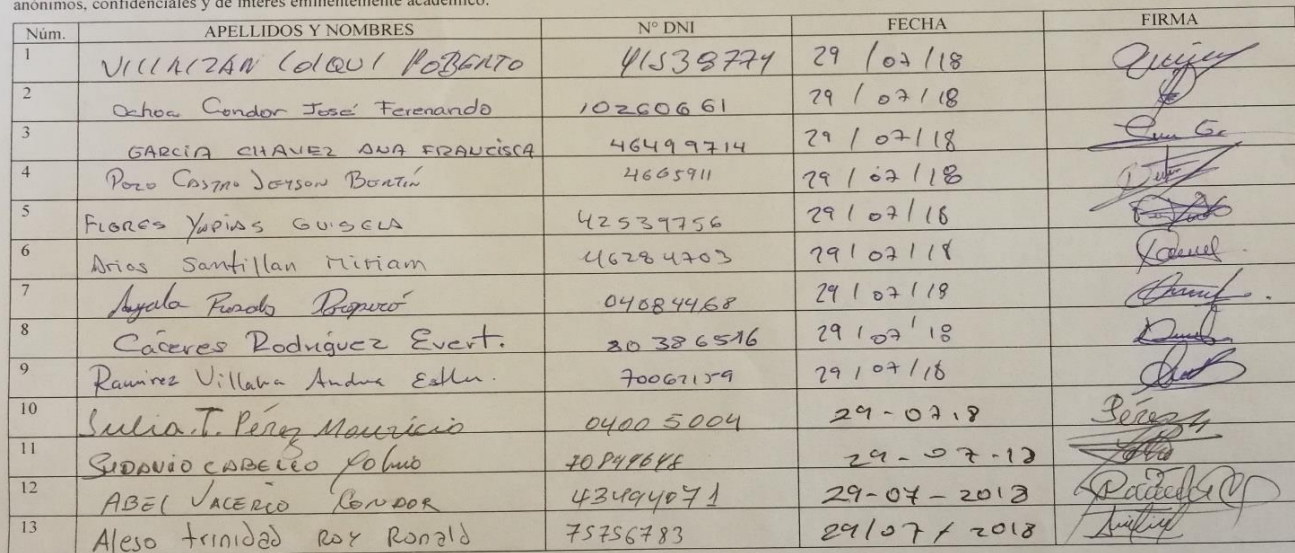 anónimos, confidenciales y de interés eminentemente académico.
Núm. APELLIDOS Y NOMBRES N° DNI FECHA FIRMA
1 VILLAIZAN COLQUI ROBERTO 41539774 29 / 07 / 18
2 Ochoa Condor José Ferenando 10260661 29 / 07 / 18
3 GARCIA CHAVEZ ANA FRANCISCA 46499714 29 / 07 / 18
4 POZO CASTRO JEYSON BERTÍN 4665911 29 / 07 / 18
5 FLORES YUPIAS GUISELA 42539756 29 / 07 / 18
6 Arias Santillan Miriam 46284703 29 / 07 / 18
7 Ayala 04084468 29 / 07 / 18
8 Cáceres Rodríguez Evert. 80386516 29 / 07 / 18
9 Ramirez Villava Andrea Esther. 70062159 29 / 07 / 18
10 Julia.T. Pérez Mauricio 04005004 29-07.8 Pérez
11 CABELLO 29-07-18
12 ABEL VALERIO CONDOR 43494071 29-07-2018
13 Aleso trinidad Roy Ronald 75756783 29/07/2018